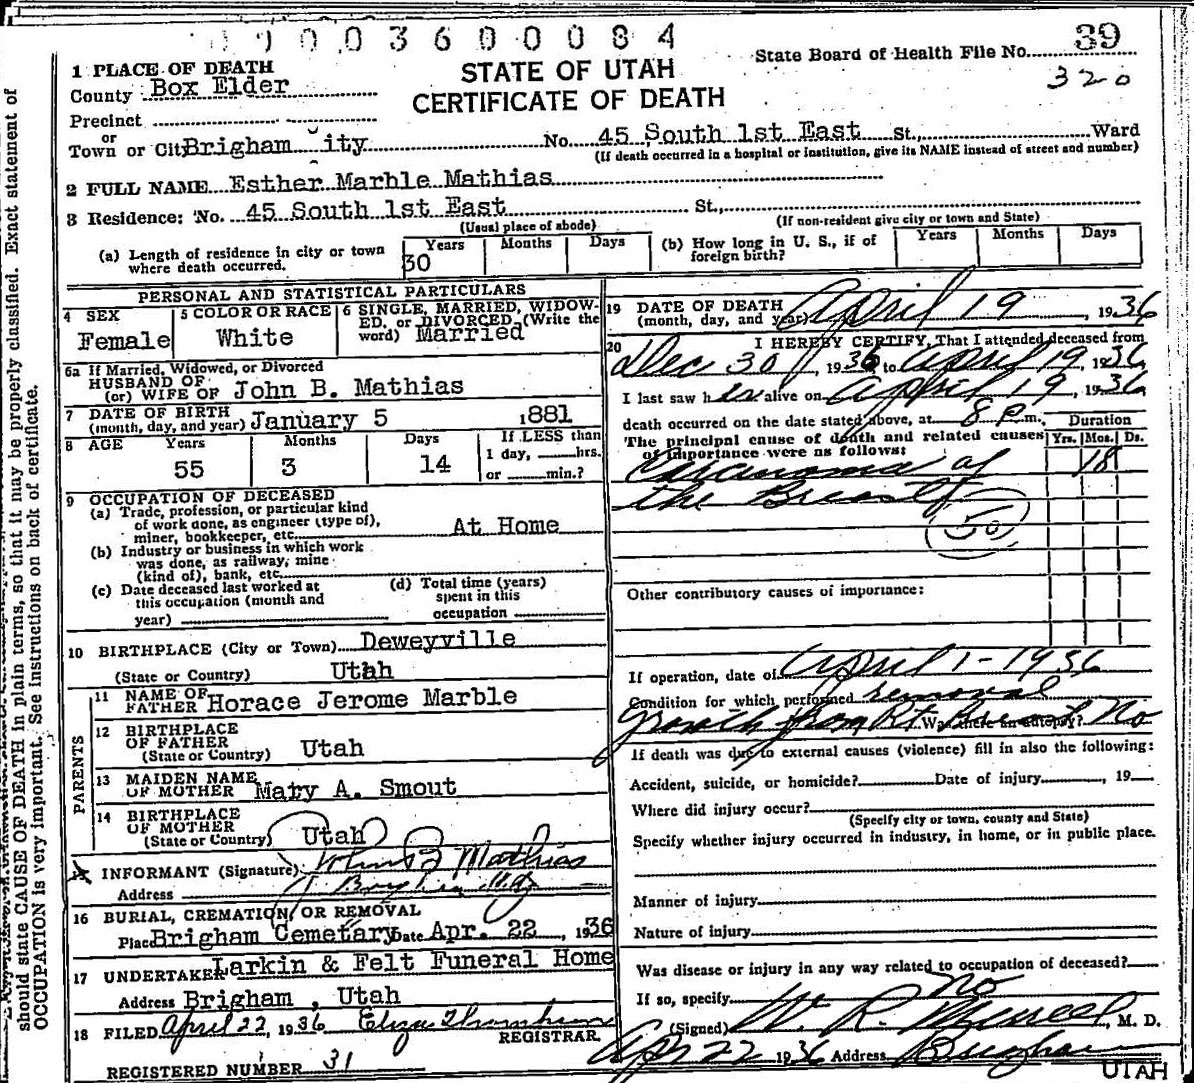 1 0 0 3 6 0 0 0 8 4
State Board of Health File No. 39
320
STATE OF UTAH
CERTIFICATE OF DEATH
1 PLACE OF DEATH
County Box Elder
Precinct
or
Town or City Brigham ity No. 45 South 1st East St., Ward
(If death occurred in a hospital or institution, give its NAME instead of street and number)
2 FULL NAME Esther Marble Mathias
3 Residence: No. 45 South 1st East St.,
(Usual place of abode) (If non-resident give city or town and State)
(a) Length of residence in city or town where death occurred. Years 30 Months Days
(b) How long in U. S., if of foreign birth? Years Months Days
should state CAUSE OF DEATH in plain terms, so that it may be properly classified. Exact statement of
OCCUPATION is very important. See instructions on back of certificate.
PERSONAL AND STATISTICAL PARTICULARS
4 SEX Female
5 COLOR OR RACE White
6 SINGLE, MARRIED, WIDOWED, or DIVORCED (Write the word) Married
6a If Married, Widowed, or Divorced
HUSBAND OF
(or) WIFE OF John B. Mathias
7 DATE OF BIRTH
(month, day, and year) January 5 1881
8 AGE Years 55 Months 3 Days 14
If LESS than
1 day, hrs.
or min.?
9 OCCUPATION OF DECEASED
(a) Trade, profession, or particular kind
of work done, as engineer (type of),
miner, bookkeeper, etc. At Home
(b) Industry or business in which work
was done, as railway, mine
(kind of), bank, etc.
(c) Date deceased last worked at
this occupation (month and
year)
(d) Total time (years)
spent in this
occupation
10 BIRTHPLACE (City or Town) Deweyville
(State or Country) Utah
PARENTS
11 NAME OF
FATHER Horace Jerome Marble
12 BIRTHPLACE
OF FATHER
(State or Country) Utah
13 MAIDEN NAME
OF MOTHER Mary A. Smout
14 BIRTHPLACE
OF MOTHER
(State or Country) Utah
INFORMANT (Signature) John B Mathias
Address Brigham
16 BURIAL, CREMATION, OR REMOVAL
Place Brigham Cemetary Date Apr. 22, 1936
17 UNDERTAKER Larkin & Felt Funeral Home
Address Brigham , Utah
18 FILED April 22, 1936 Eliza
REGISTRAR.
REGISTERED NUMBER 31
19 DATE OF DEATH
(month, day, and year) April 19, 1936
20 I HEREBY CERTIFY, That I attended deceased from
Dec 30, 1936, to April 19, 1936
I last saw her alive on April 19, 1936
death occurred on the date stated above, at 8 P. m.
The principal cause of death and related causes
of importance were as follows:
Duration
Yrs. Mos. Ds.
Carcinoma of 18
the Breast
50
Other contributory causes of importance:
If operation, date of April 1-1936
Condition for which performed removal
growth from Rt Breast Was there an autopsy? No
If death was due to external causes (violence) fill in also the following:
Accident, suicide, or homicide? Date of injury , 19
Where did injury occur?
(Specify city or town, county and State)
Specify whether injury occurred in industry, in home, or in public place.
Manner of injury
Nature of injury
Was disease or injury in any way related to occupation of deceased?
If so, specify no
(Signed) W. R. , M. D.
Apr 22 1936 Address Brigham
UTAH